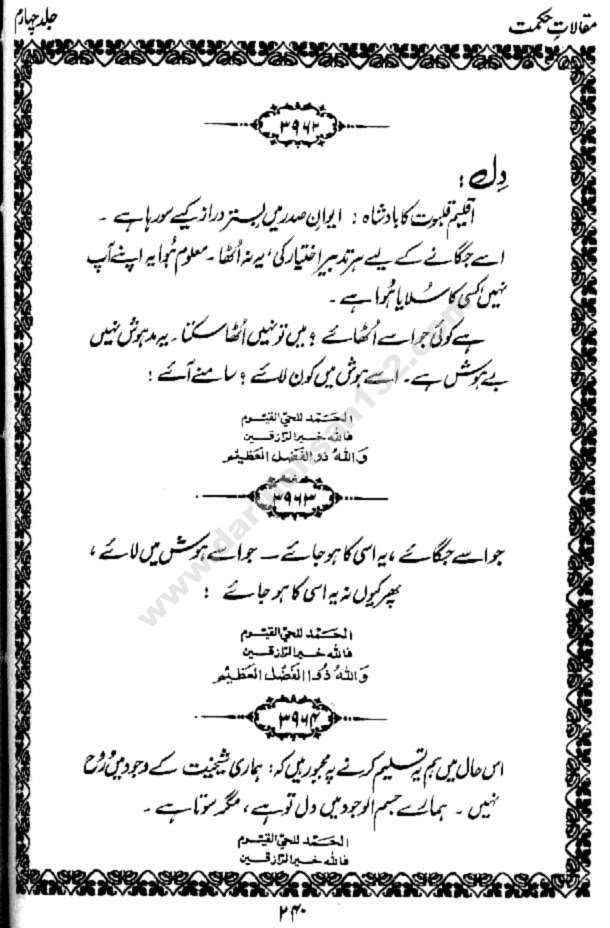 مقالاتِ حکمت
جلد چہارم
۳۹۶۲
دِل :
اقلیمِ قلبوت کا بادشاہ : ایوانِ صدر میں بستر دراز کیے سو رہا ہے ۔
اسے جگانے کے لیے ہر تدبیر اختیار کی، یہ نہ اُٹھا ۔ معلوم ہُوا یہ اپنے آپ
نہیں کسی کا سُلایا ہُوا ہے ۔
ہے کوئی جو اسے اُٹھائے ؟ میں تو نہیں اُٹھا سکتا ۔ یہ مدہوش نہیں
بے ہوش ہے ۔ اسے ہوش میں کون لائے ؟ سامنے آئے !
الحَمد للحي القيّوم
فالله خير الرّازقين
وَاللهُ ذُو الفَضْل العَظِيْم
۳۹۶۳
جو اسے جگائے ، یہ اسی کا ہو جائے ـ جو اسے ہوش میں لائے ،
پھر کیوں نہ یہ اسی کا ہو جائے !
الحَمد للحي القيّوم
فالله خير الرّازقين
وَاللهُ ذُو الفَضْل العَظِيْم
۳۹۶۴
اس حال میں ہم یہ تسلیم کرنے پہ مجبور ہیں کہ : ہماری شیخیت کے وجود میں رُوح
نہیں ۔ ہمارے جسم الوجود میں دل تو ہے ، مگر سوتا ہے ۔
الحَمد للحي القيّوم
فالله خير الرّازقين
۲۴۰